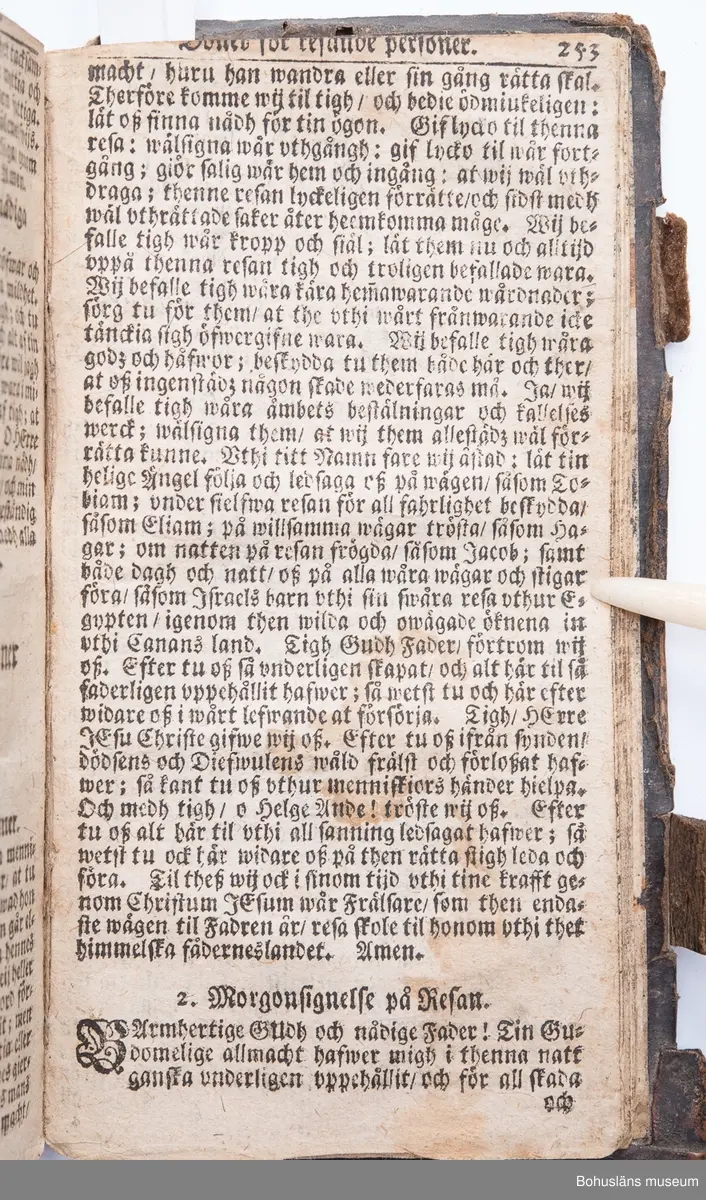 Böner för resande personer. 253
macht/ huru han wandra eller sin gång rätta skal.
Therföre komme wij til tigh/ och bedie ödmiukeligen:
låt oß finna nådh för tin ögon. Gif lycko til thenna
resa: wälsigna wår vthgångh: gif lycko til wår fort-
gång; giör salig wår hem och ingång: at wij wäl vth-
draga; thenne resan lyckeligen förrätte/och sidst medh
wäl vthrättade saker åter heemkomma måge. Wij be-
falle tigh wår kropp och siäl; låt them nu och alltijd
vppå thenna resan tigh och troligen befallade wara.
Wij befalle tigh wåra kära hem̃awarande wårdnader;
sörg tu för them/ at the vthi wårt frånwarande icke
tänckia sigh öfwergifne wara. Wij befalle tigh wåra
godz och håfwor; beskydda tu them både här och ther/
at oß ingenstädz någon skade wederfaras må. Ja/ wij
befalle tigh wåra ämbets beställningar och kallelses
werck; wälsigna them/ at wij them allestädz wäl för-
rätta kunne. Vthi titt Namn fare wij åstad: låt tin
helige Ängel följa och ledsaga oß på wägen/ såsom To-
biam; vnder sielfwa resan för all fahrlighet beskydda/
såsom Eliam; på willsamma wägar trösta/ såsom Ha-
gar; om natten på resan frögda/ såsom Jacob; samt
både dagh och natt/ oß på alla wåra wägar och stigar
föra/ såsom Israels barn vthi sin swåra resa vthur E-
gypten/ igenom then wilda och owägade öknena in
vthi Canans land. Tigh Gudh Fader/ förtrom wij
oß. Efter tu oß så vnderligen skapat/ och alt här til så
faderligen vppehållit hafwer; så wetst tu och här efter
widare oß i wårt lefwande at försörja. Tigh/ HErre
JEsu Christe gifwe wij oß. Efter tu oß ifrån synden/
dödsens och Diefwulens wåld frälst och förloßat haf-
wer; så kant tu oß vthur menniskiors händer hielpa.
Och medh tigh/ o Helge Ande! tröste wij oß. Efter
tu oß alt här til vthi all sanning ledsagat hafwer; så
wetst tu ock här widare oß på then rätta stigh leda och
föra. Til theß wij ock i sinom tijd vthi tine krafft ge-
nom Christum JEsum wår Frälsare/ som then enda-
ste wägen til Fadren är/ resa skole til honom vthi thet
himmelska fäderneslandet. Amen.
2. Morgonsignelse på Resan.
BArmhertige GUdh och nådige Fader! Tin Gu-
domelige allmacht hafwer migh i thenna natt
ganska vnderligen vppehållit/ och för all skada
och
Bohusläns museum